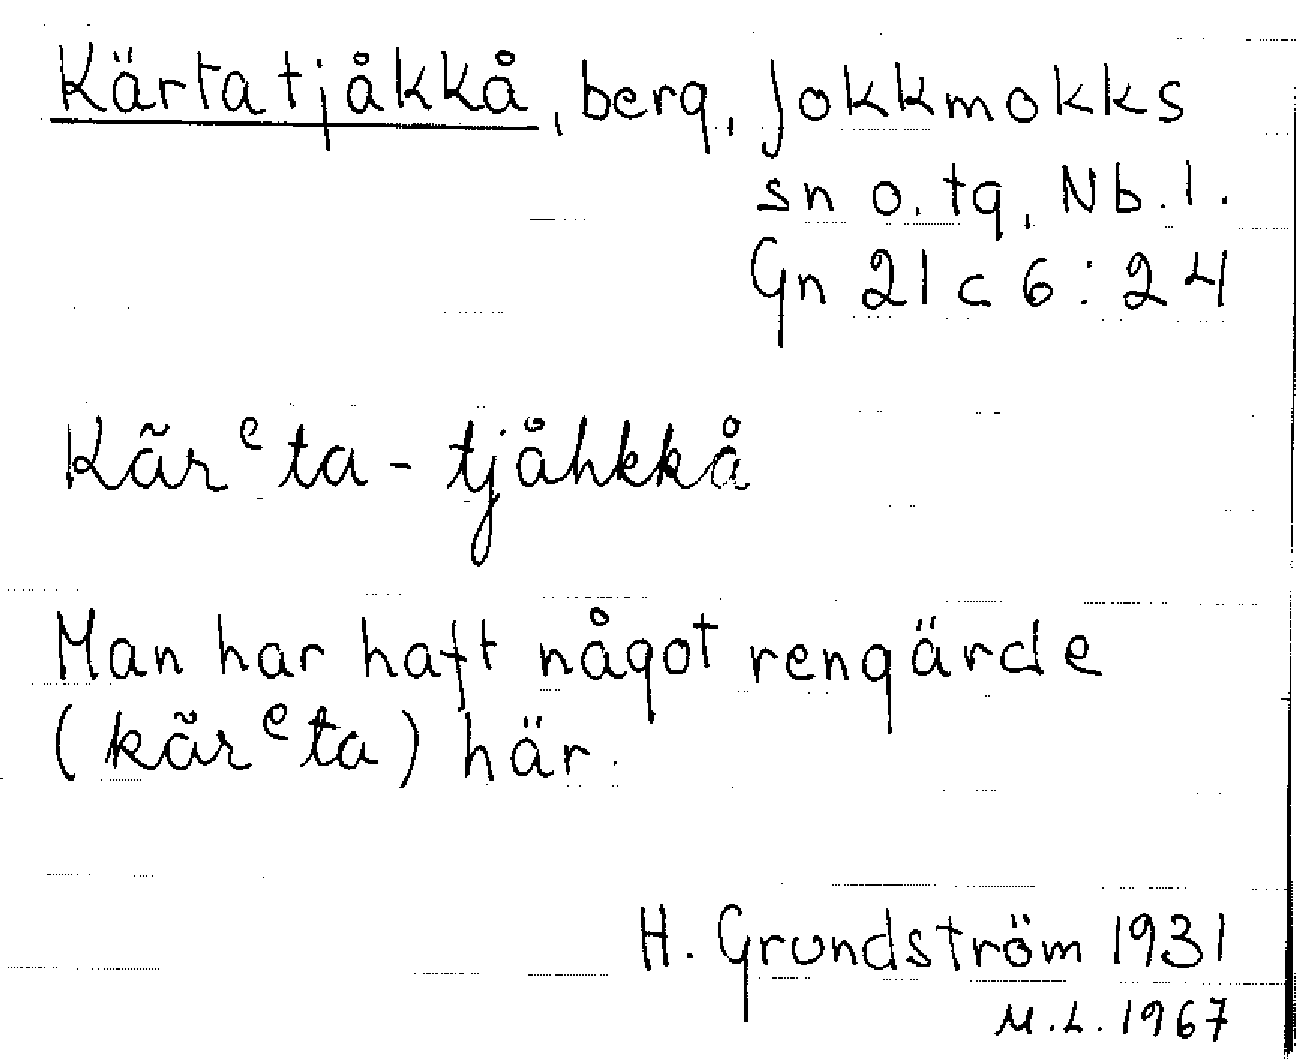 Kärtatjåkkå, berg, Jokkmokks
sn o. tg, Nb. l.
Gn 21 c 6:24
Kãrᵉta-tjåhkkå
Man har haft något rengärde
(kãrᵉta) här.
H. Grundström 1931
M.L. 1967